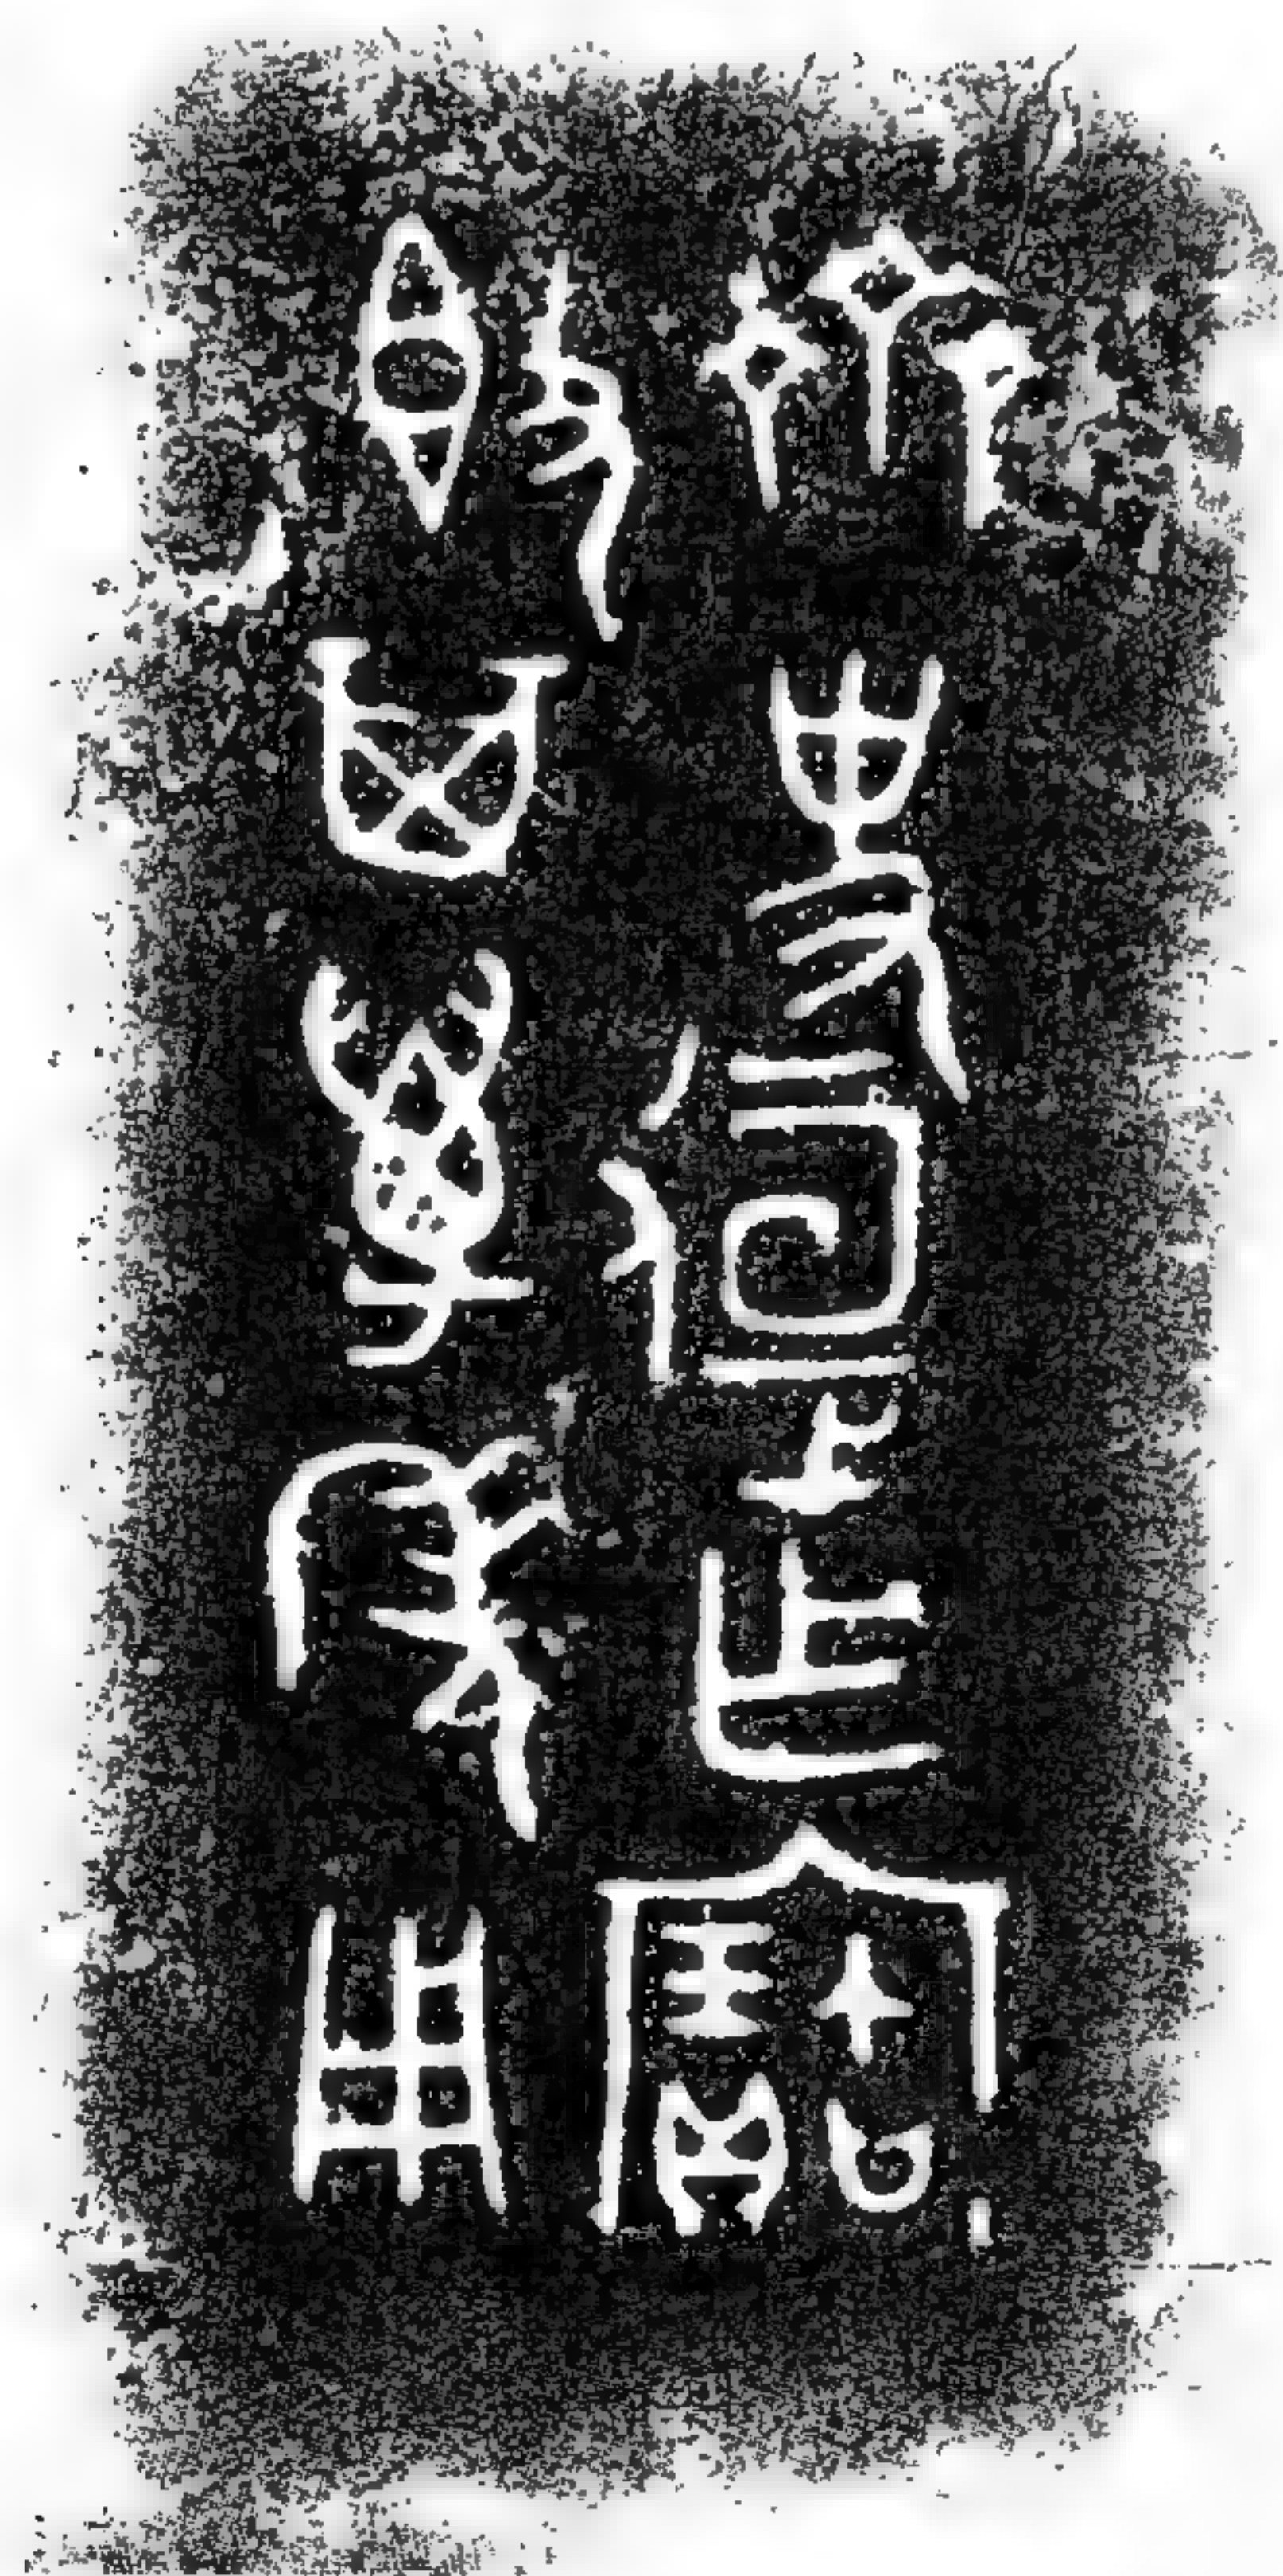 齊史乍寶
𣪘其萬年用